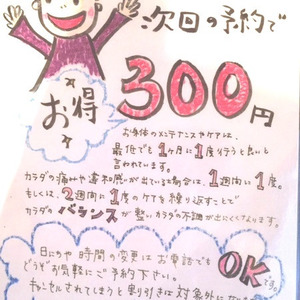 次回の予約で
お得
300円
お身体のメンテナンスやケアは、
最低でも1ヶ月に1度行うと良いと
言われています。
カラダの痛みや違和感が出ている場合は、1週間に1度。
もしくは、2週間に1度のケアを繰り返すことで
カラダのバランスが整いカラダの不調が出にくくなります。
日にちや時間の変更はお電話でもOKです。
どうぞお気軽にご予約下さい。
キャンセルされてしまうと割引きは対象外に